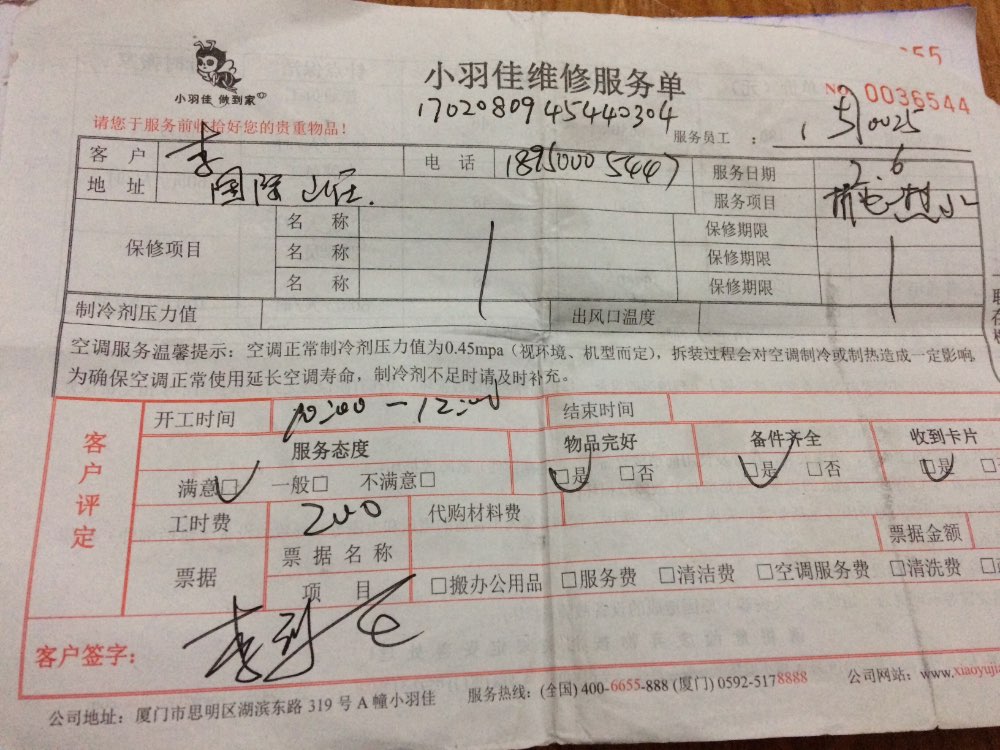 小羽佳 做到家
小羽佳维修服务单
No 0036544
1702080945440304
请您于服务前收拾好您的贵重物品！
服务员工 ：
客 户 李 电 话 18950005447 服务日期 2.6
地 址 国际 服务项目
保修项目 名 称 保修期限
名 称 保修期限
名 称 保修期限
制冷剂压力值 出风口温度
空调服务温馨提示：空调正常制冷剂压力值为0.45mpa（视环境、机型而定），拆装过程会对空调制冷或制热造成一定影响，
为确保空调正常使用延长空调寿命，制冷剂不足时请及时补充。
客户评定
开工时间 10:00-12:00 结束时间
服务态度 物品完好 备件齐全 收到卡片
满意□ 一般□ 不满意□ □是 □否 □是 □否 □是
工时费 200 代购材料费
票据 票据名称 票据金额
项 目 □搬办公用品 □服务费 □清洁费 □空调服务费 □清洗费
客户签字：
公司地址：厦门市思明区湖滨东路 319 号 A 幢小羽佳 服务热线：(全国) 400-6655-888 (厦门) 0592-5178888 公司网站：www.xiaoyujia